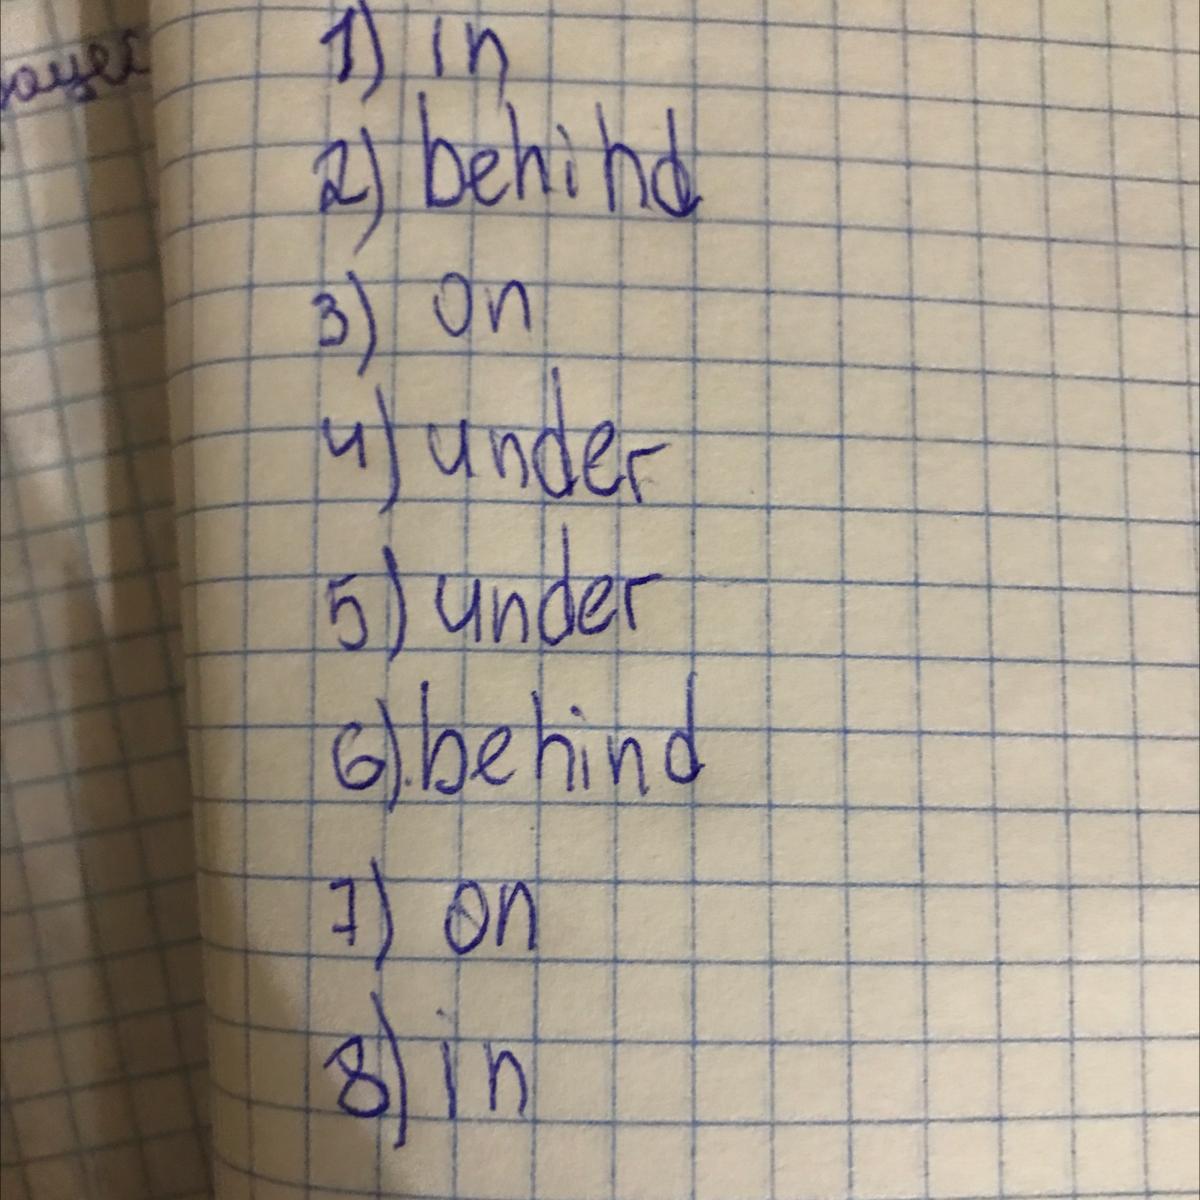 1) in
2) behind
3) on
4) under
5) under
6) behind
7) on
8) in